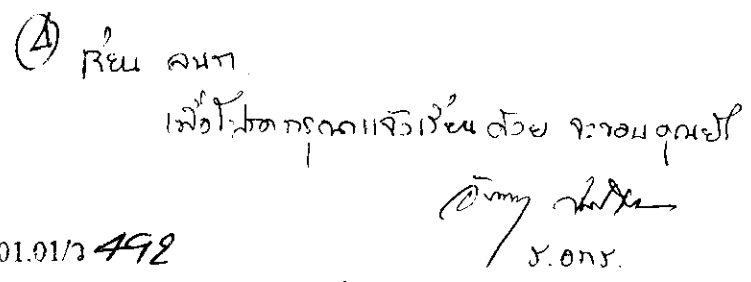 ④ เรียน ลนท.
เพื่อโปรดกรุณาแจ้งเวียนด้วย จะขอบคุณยิ่ง
ร.อทร.
01.01/ว 492